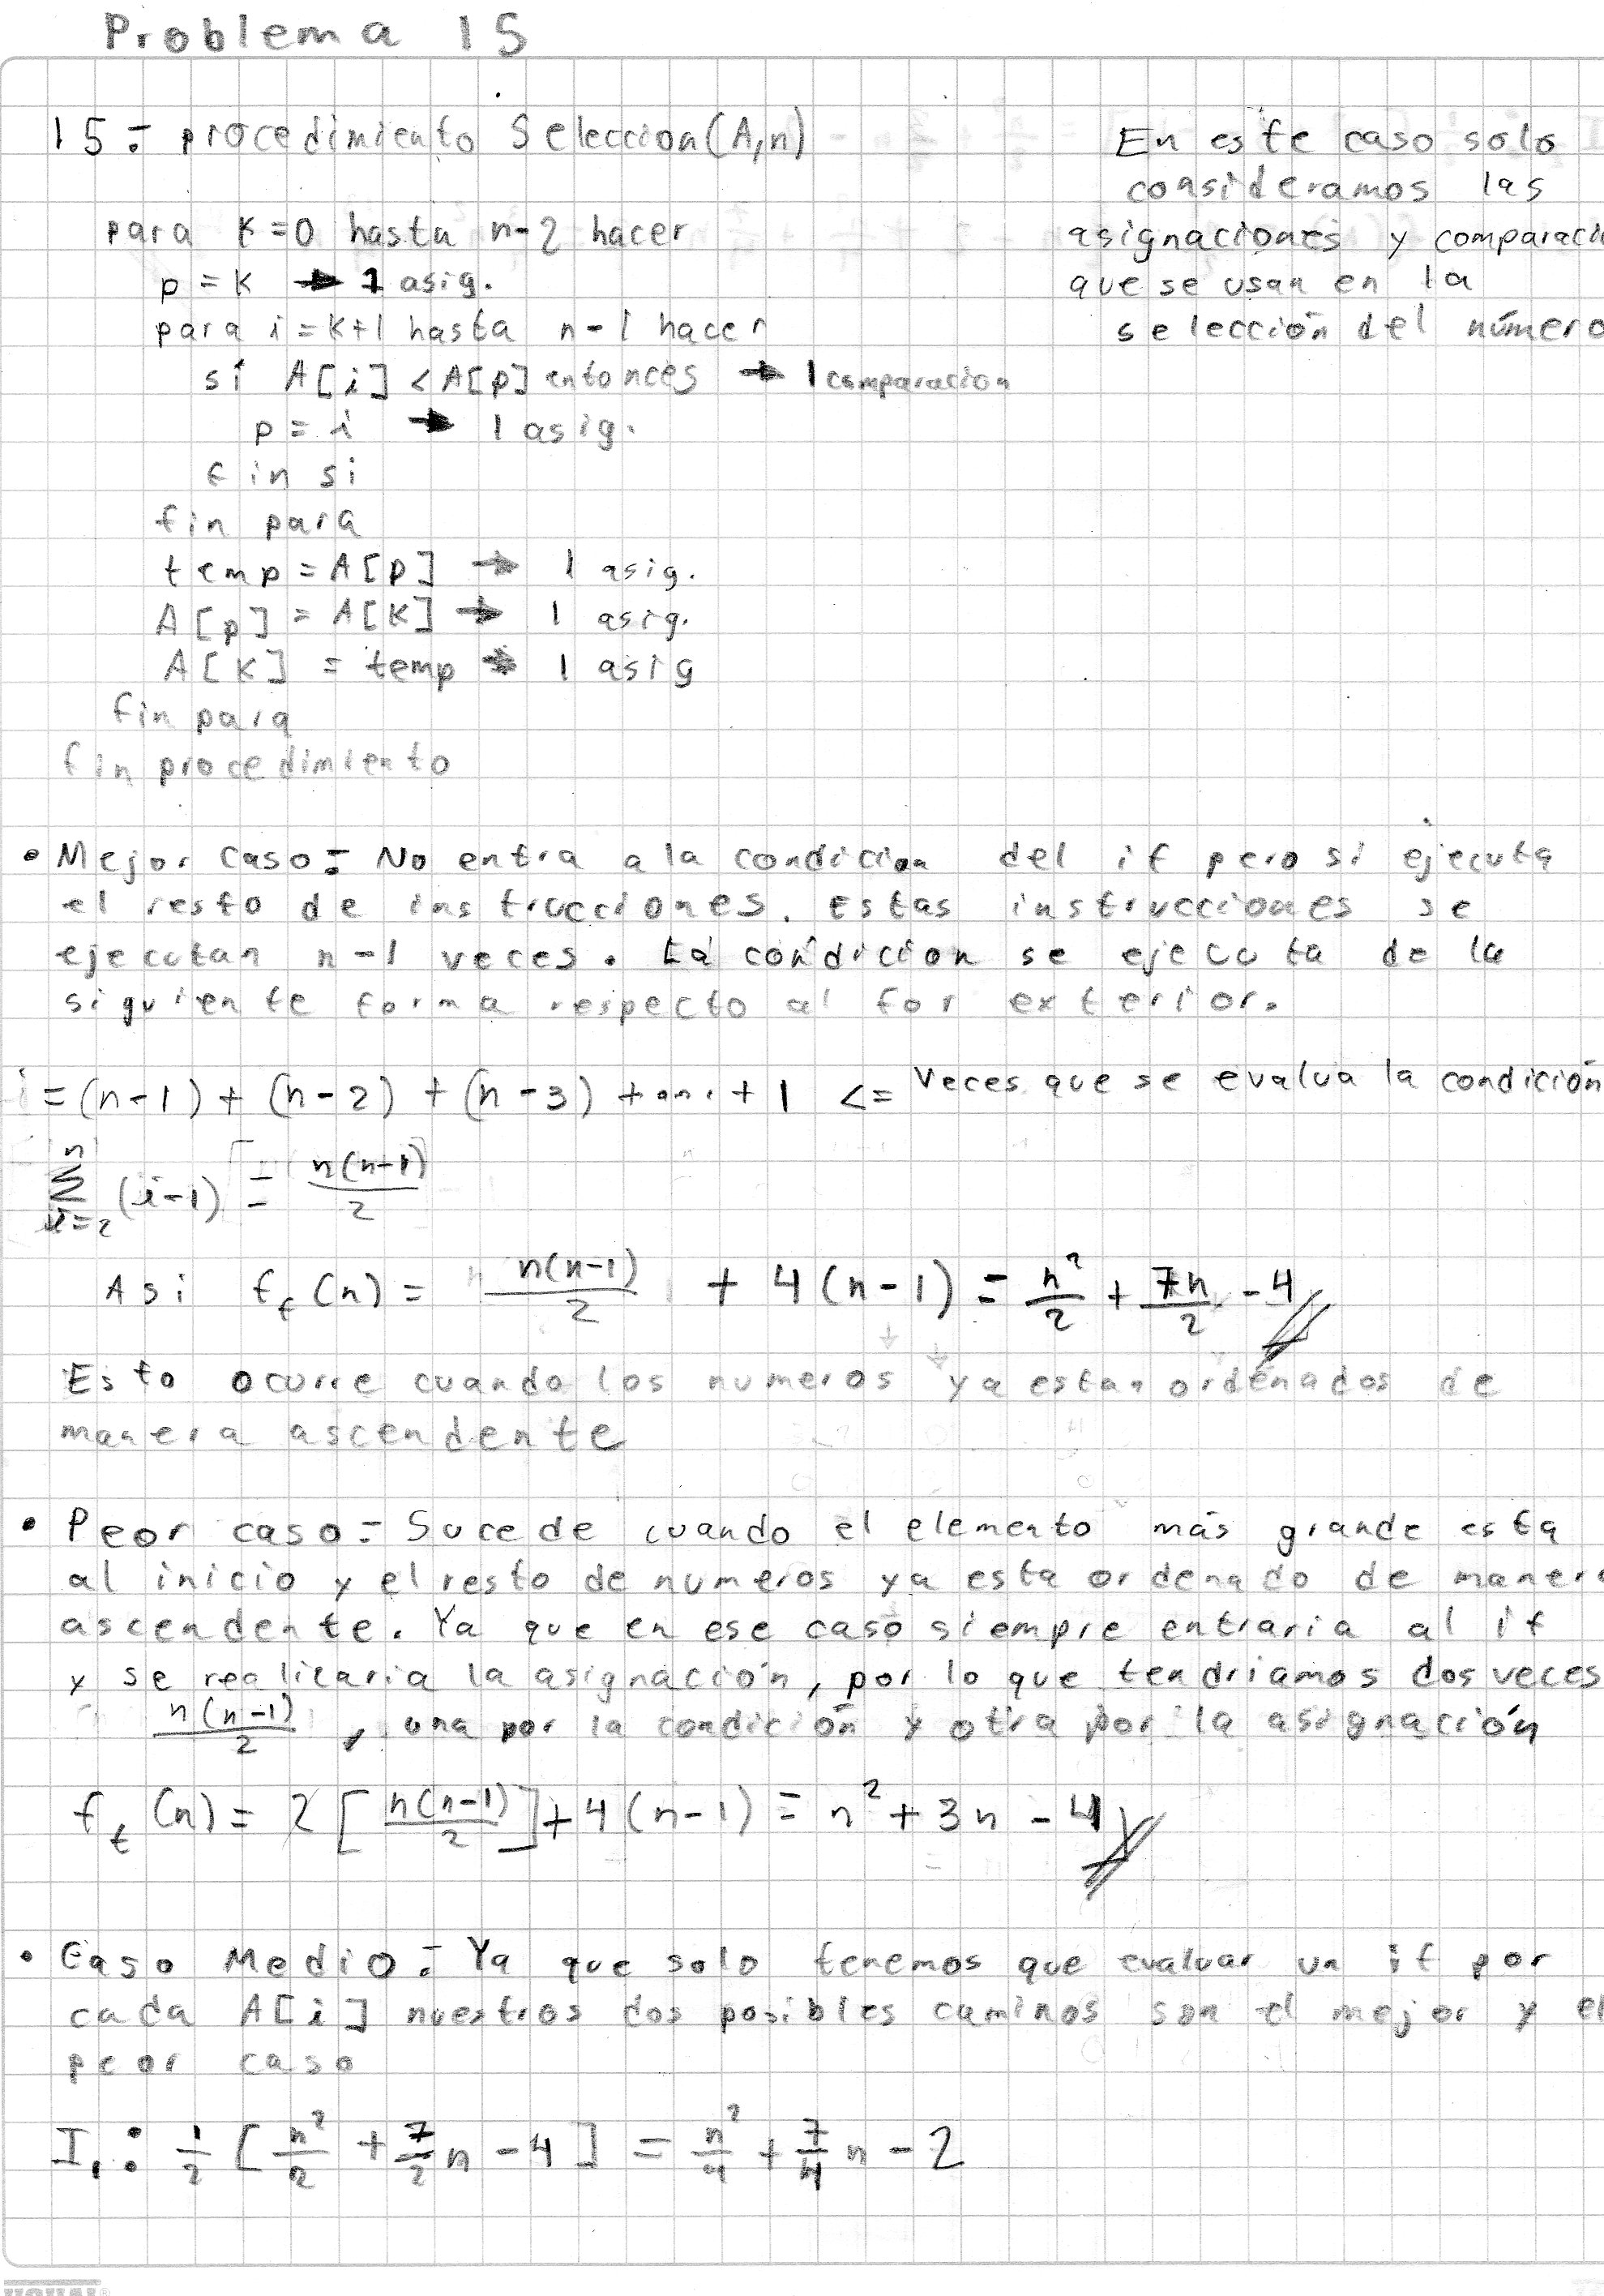 Problema 15
15.- procedimiento Seleccion(A,n)
para k=0 hasta n-2 hacer
p = k → 1 asig.
para i=k+1 hasta n-1 hacer
si A[i] < A[p] entonces → 1 comparacion
p = i → 1 asig.
fin si
fin para
temp = A[p] → 1 asig.
A[p] = A[k] → 1 asig.
A[k] = temp → 1 asig
fin para
fin procedimiento
En este caso solo
consideramos las
asignaciones y comparaci
que se usan en la
selección del número
• Mejor caso.- No entra a la condicion del if pero si ejecuta
el resto de instrucciones. Estas instrucciones se
ejecutan n-1 veces. La condicion se ejecuta de la
siguiente forma respecto al for exterior.
i = (n-1) + (n-2) + (n-3) + ... + 1 <= Veces que se evalua la condición
∑_{i=2}^{n} (i-1) = n(n-1)/2
Asi f_t(n) = n(n-1)/2 + 4(n-1) = n²/2 + 7n/2 - 4
Esto ocurre cuando los numeros ya estan ordenados de
manera ascendente
• Peor caso.- Sucede cuando el elemento más grande esta
al inicio y el resto de numeros ya esta ordenado de manera
ascendente. Ya que en ese caso siempre entraria al if
y se realizaria la asignación, por lo que tendriamos dos veces
n(n-1)/2, una por la condición y otra por la asignación
f_t(n) = 2[n(n-1)/2] + 4(n-1) = n² + 3n - 4
• Caso Medio.- Ya que solo tenemos que evaluar un if por
cada A[i] nuestros dos posibles caminos son el mejor y el
peor caso
I₁: 1/2 [n²/2 + 7/2 n - 4] = n²/4 + 7/4 n - 2